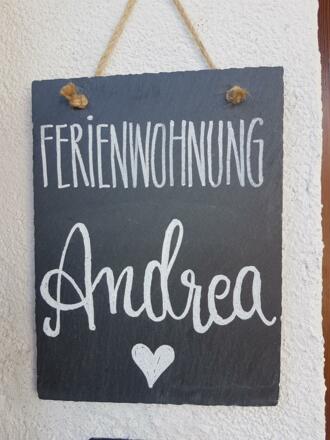 FERiENWOHNUNG
Andrea